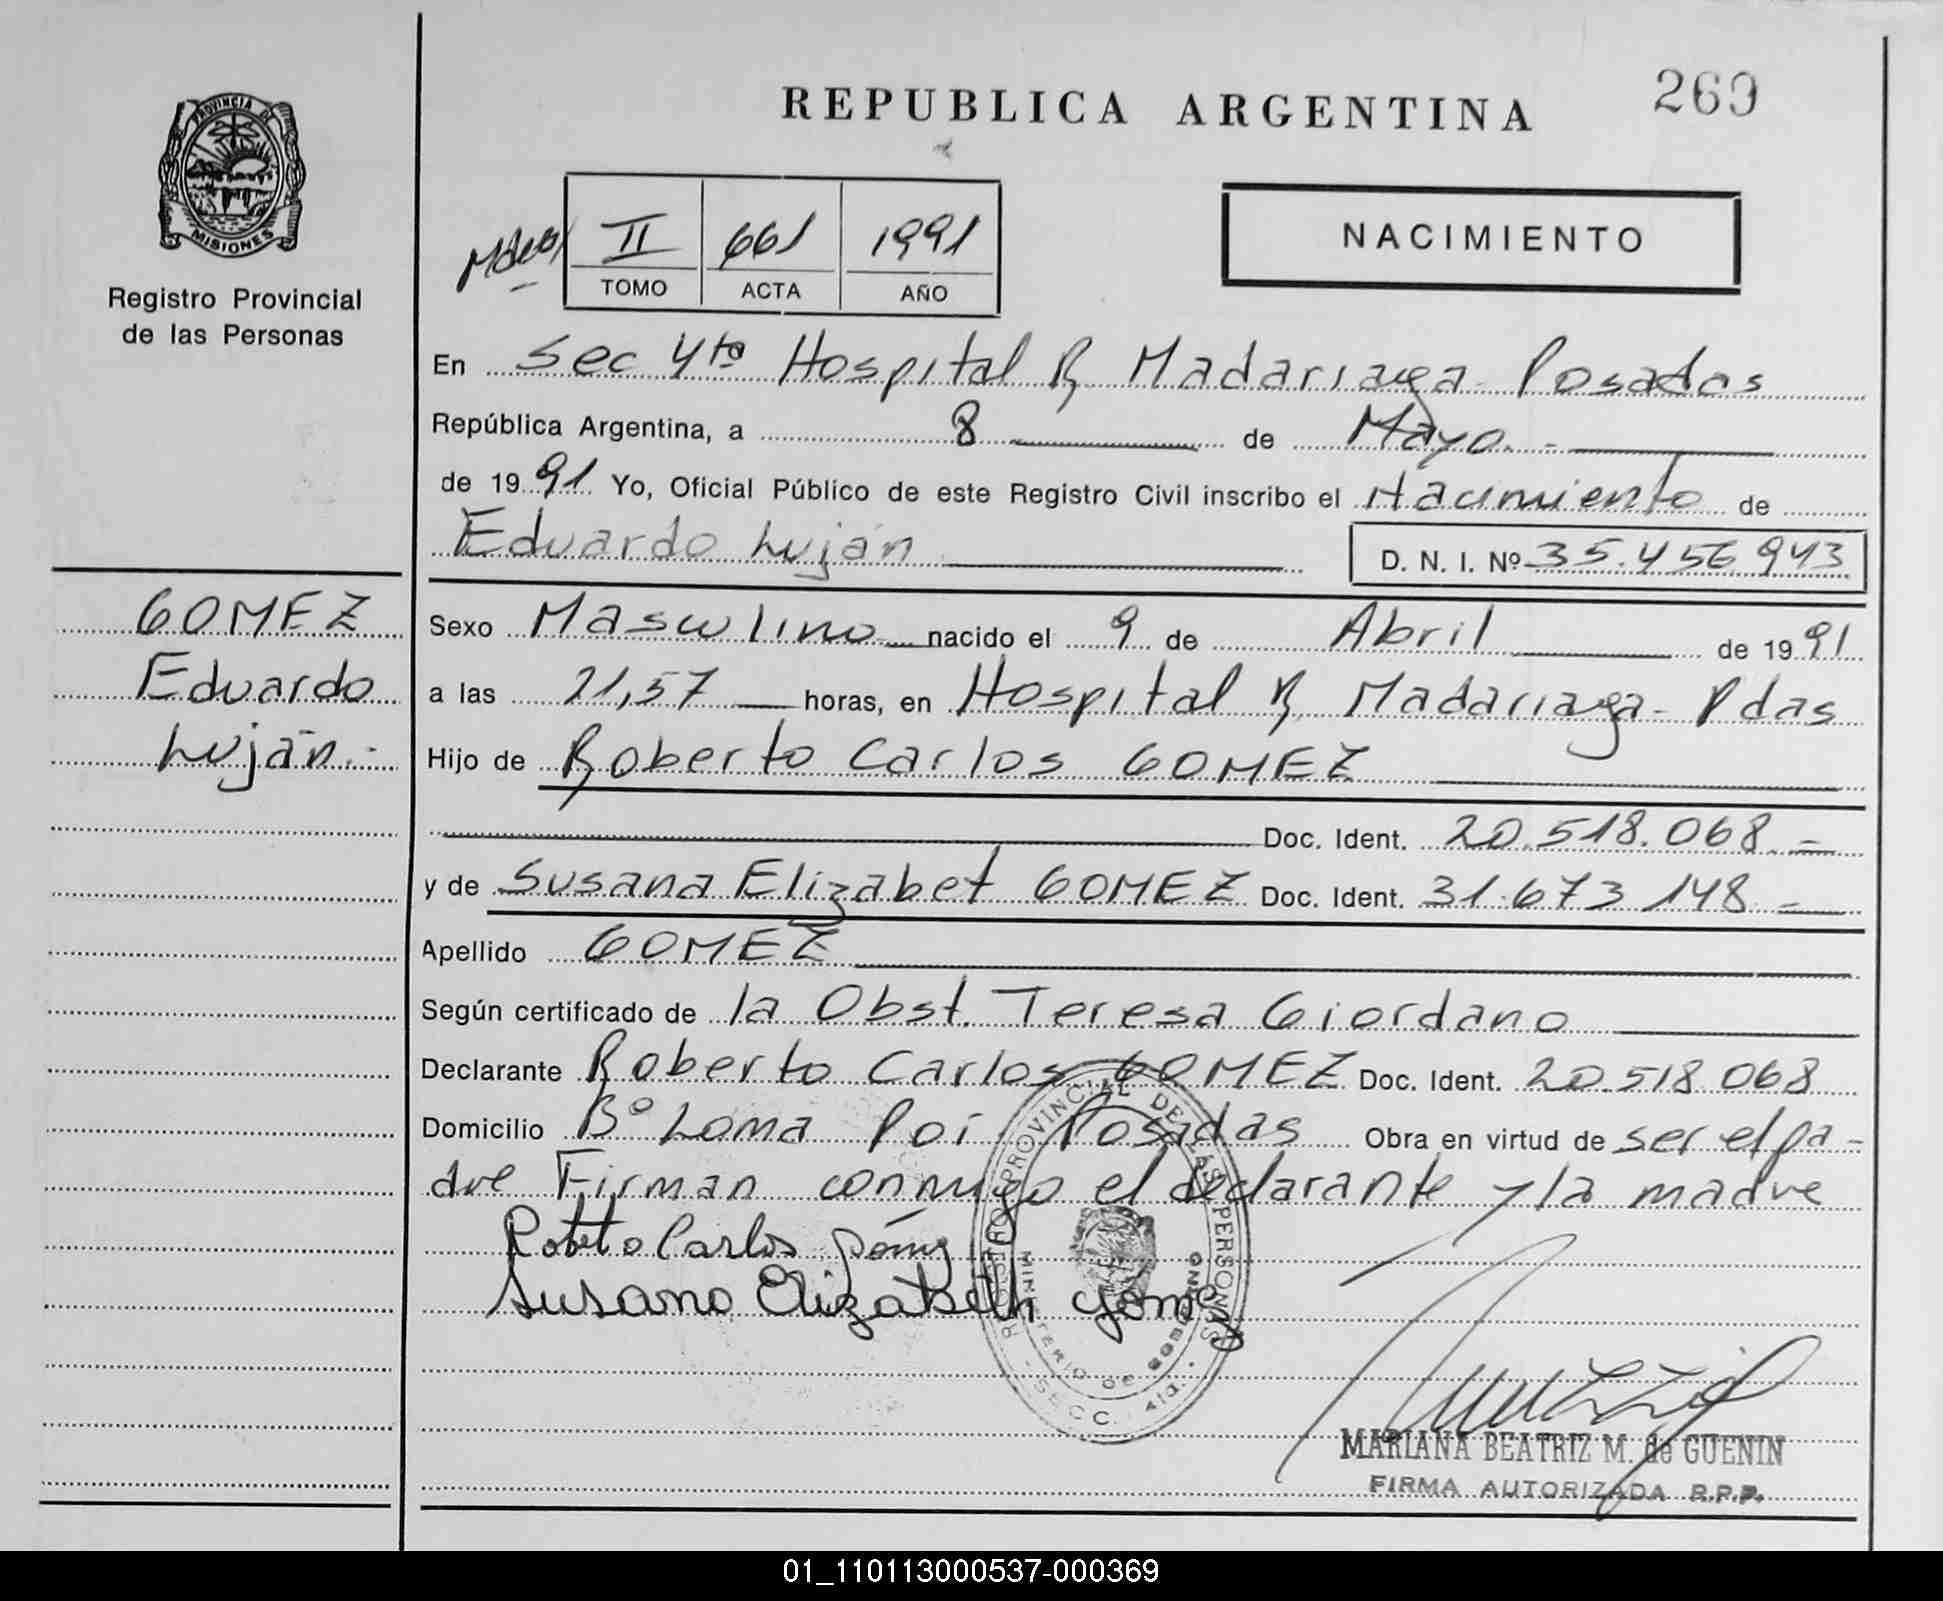 REPUBLICA ARGENTINA
269
PROVINCIA DE
MISIONES
Registro Provincial
de las Personas
II 661 1991
TOMO ACTA AÑO
NACIMIENTO
En Sec 4ta Hospital R Madariaga - Posadas
República Argentina, a 8 de Mayo.-
de 1991 Yo, Oficial Público de este Registro Civil inscribo el Nacimiento de
Eduardo Luján
D. N. I. Nº 35.456 943
GOMEZ
Eduardo
Luján.-
Sexo Masculino nacido el 9 de Abril de 1991
a las 21,57 horas, en Hospital R Madariaga - Pdas
Hijo de Roberto Carlos GOMEZ
Doc. Ident. 20.518.068.=
y de Susana Elizabet GOMEZ Doc. Ident. 31.673 148 =
Apellido GOMEZ
Según certificado de la Obst. Teresa Giordano
Declarante Roberto Carlos GOMEZ Doc. Ident. 20.518 068
Domicilio Bº Loma Poi Posadas Obra en virtud de ser el pa-
dre Firman conmigo el declarante y la madre
Roberto Carlos Gómez
Susana Elizabeth Gómez
REGISTRO PROVINCIAL DE LAS PERSONAS
MINISTERIO DE GOBIERNO
- SECC. 4ta. -
MARIANA BEATRIZ M. de GUENIN
FIRMA AUTORIZADA R.P.P.
01_110113000537-000369